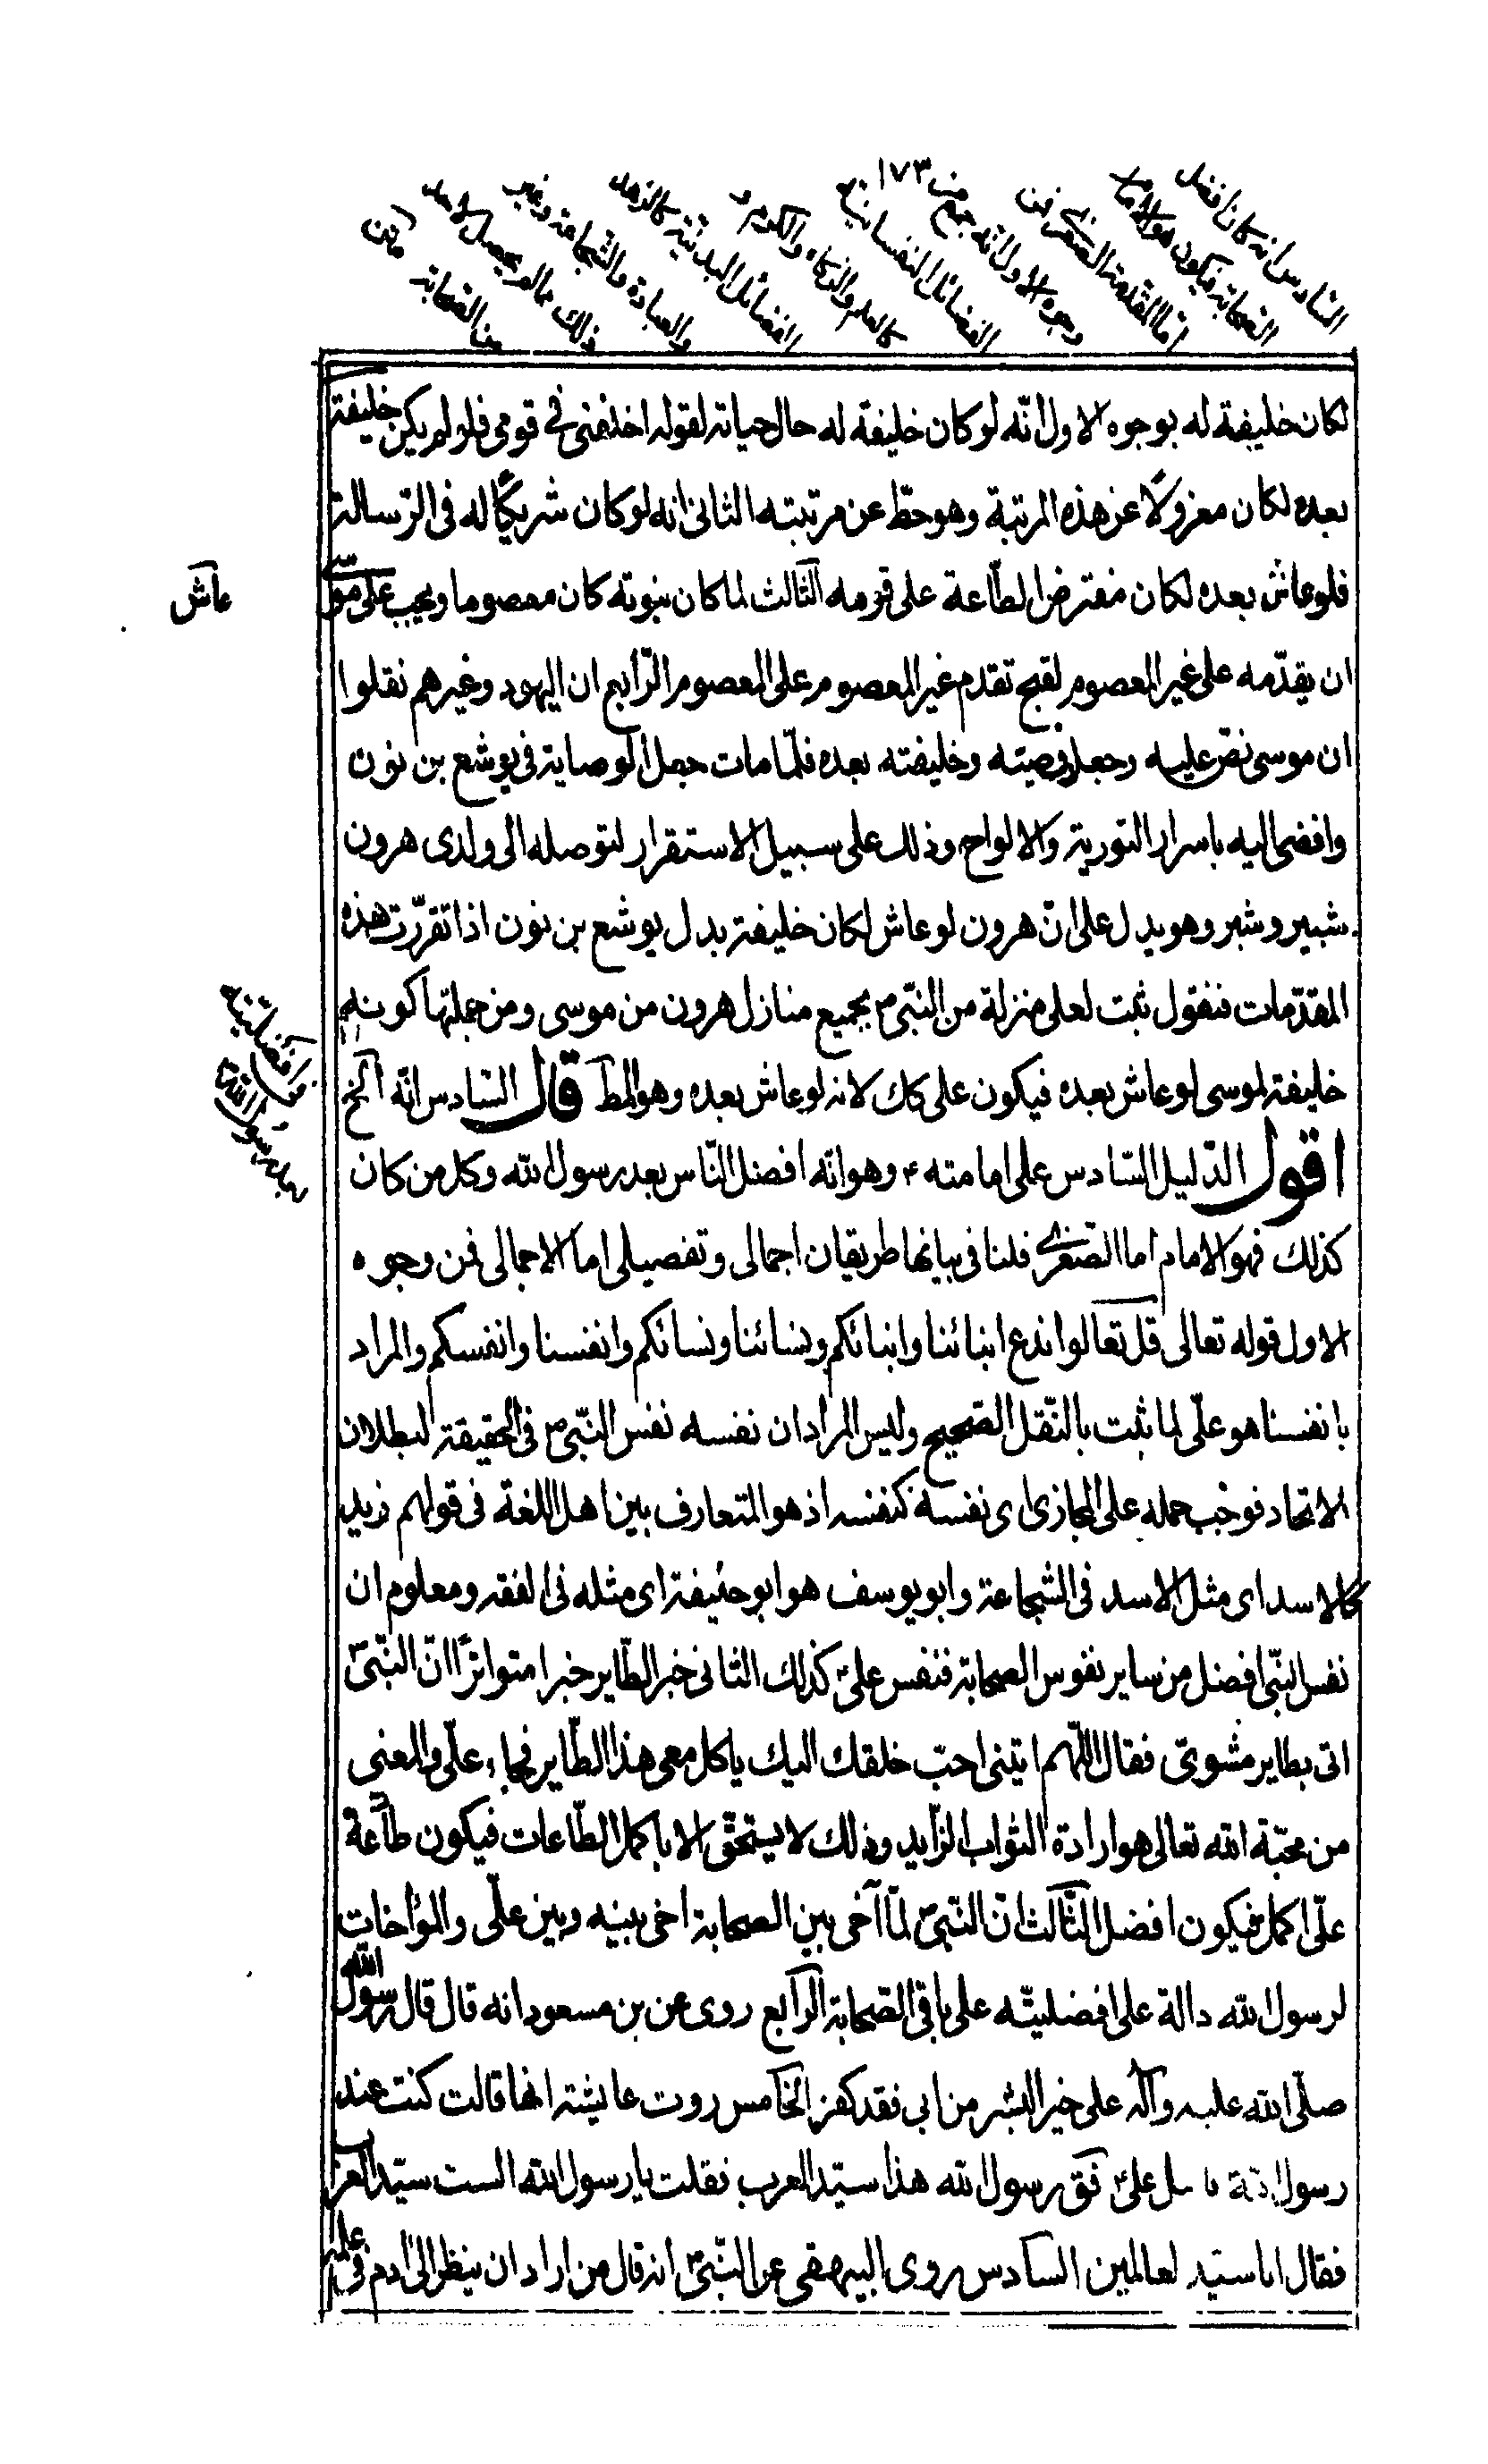 السادس انه كان افضل
الصحابة فيكون هو الامام
اما المقدمة الصغرى فمن
وجوه الاول انه جمع
١٧٣
الفضائل النفسانية
كالعلم والذكاء والكرم و
الفضائل البدنية كالزهد
والعبادة والشجاعة وغير
ذلك مالم يحصل لاحد
من الصحابة
لكان خليفة له بوجوه الاول انّه لو كان خليفة له حال حياته لقوله اخلفنى فى قومى فلو لم يكن خليفة
بعده لكان معزولًا عن هذه المرتبة وهو حطّ عن مرتبته الثانى انه لو كان شريكًا له فى الرّسالة
فلو عاش بعده لكان مفترض الطّاعة على قومه الثّالث لما كان بنبوته كان معصوما ويجب على موسى
عاش
ان يقدّمه على غير المعصوم لقبح تقدم غير المعصوم على المعصوم الرّابع ان اليهود وغيرهم نقلوا
ان موسى نصّ عليه وجعله وصيّته وخليفته بعده فلمّا مات جعل الوصاية فى يوشع بن نون
وافضى اليه باسرار التورية والالواح وذلك على سبيل الاستقرار لتوصله الى ولدى هرون
شبير وشبر وهو يدل على انّ هرون لو عاش لكان خليفة بدل يوشع بن نون اذا تقرّرت هذه
المقدّمات فنقول ثبت لعلى منزلة من النّبىّ ص بجميع منازل هرون من موسى ومن جملتها كونه
خليفة لموسى لو عاش بعده فيكون على كك لانه لو عاش بعده وهو المط قال السّادس انّه الخ
فى افضليّته
بعد رسول الله
اقول الدّليل السّادس على امامته ع وهو انّه افضل النّاس بعد رسول الله وكل من كان
كذلك فهو الامام اما الصّغرى فلنا فى بيانها طريقان اجمالى وتفصيلى اما الاجمالى فمن وجوه
الاول قوله تعالى قل تعالوا ندع ابنائنا وابنائكم ونسائنا ونسائكم وانفسنا وانفسكم والمراد
بانفسنا هو علّى لما ثبت بالنّقل الصّحيح وليس المراد ان نفسه نفس النّبىّ ص فى الحقيقة لبطلان
الاتحاد فوجب حمله على المجازى اى نفسه كنفسه اذ هو المتعارف بين اهل اللغة فى قولهم زيد
كالاسد اى مثل الاسد فى الشجاعة وابو يوسف هو ابو حنيفة اى مثله فى الفقه ومعلوم ان
نفس النبّى افضل من ساير نفوس الصحابة فنفس علىّ كذلك الثانى خبر الطّاير خبرا متواترًا انّ النّبىّ
اتى بطاير مشوىّ فقال اللّهم ايتنى احبّ خلقك اليك ياكل معى هذا الطّاير فجاء علّى والمعنى
من محبّة الله تعالى هو ارادة الثواب الزّايد وذلك لا يستحقّ الا باكمل الطّاعات فيكون طاعة
علّى اكمل فيكون افضل الثّالث انّ النّبىّ لمّا آخى بين الصحابة اخى بينه وبين علّى والمؤاخات
لرسول الله دالة على افضليتّه على باقى الصّحابة الرّابع روى عن بن مسعود انه قال قال رسول الله
صلّى الله عليه وآله على خير البشر من ابى فقد كفر الخامس روت عايشة انها قالت كنت عند
رسول الله على فق رسول الله هذا سيّد العرب فقلت يا رسول الله الست سيّد العرب
فقال انا سيّد لعالمين السادس روى البيهقى عن النّبىّ انه قال من اراد ان ينظر الى ادم فى علمه